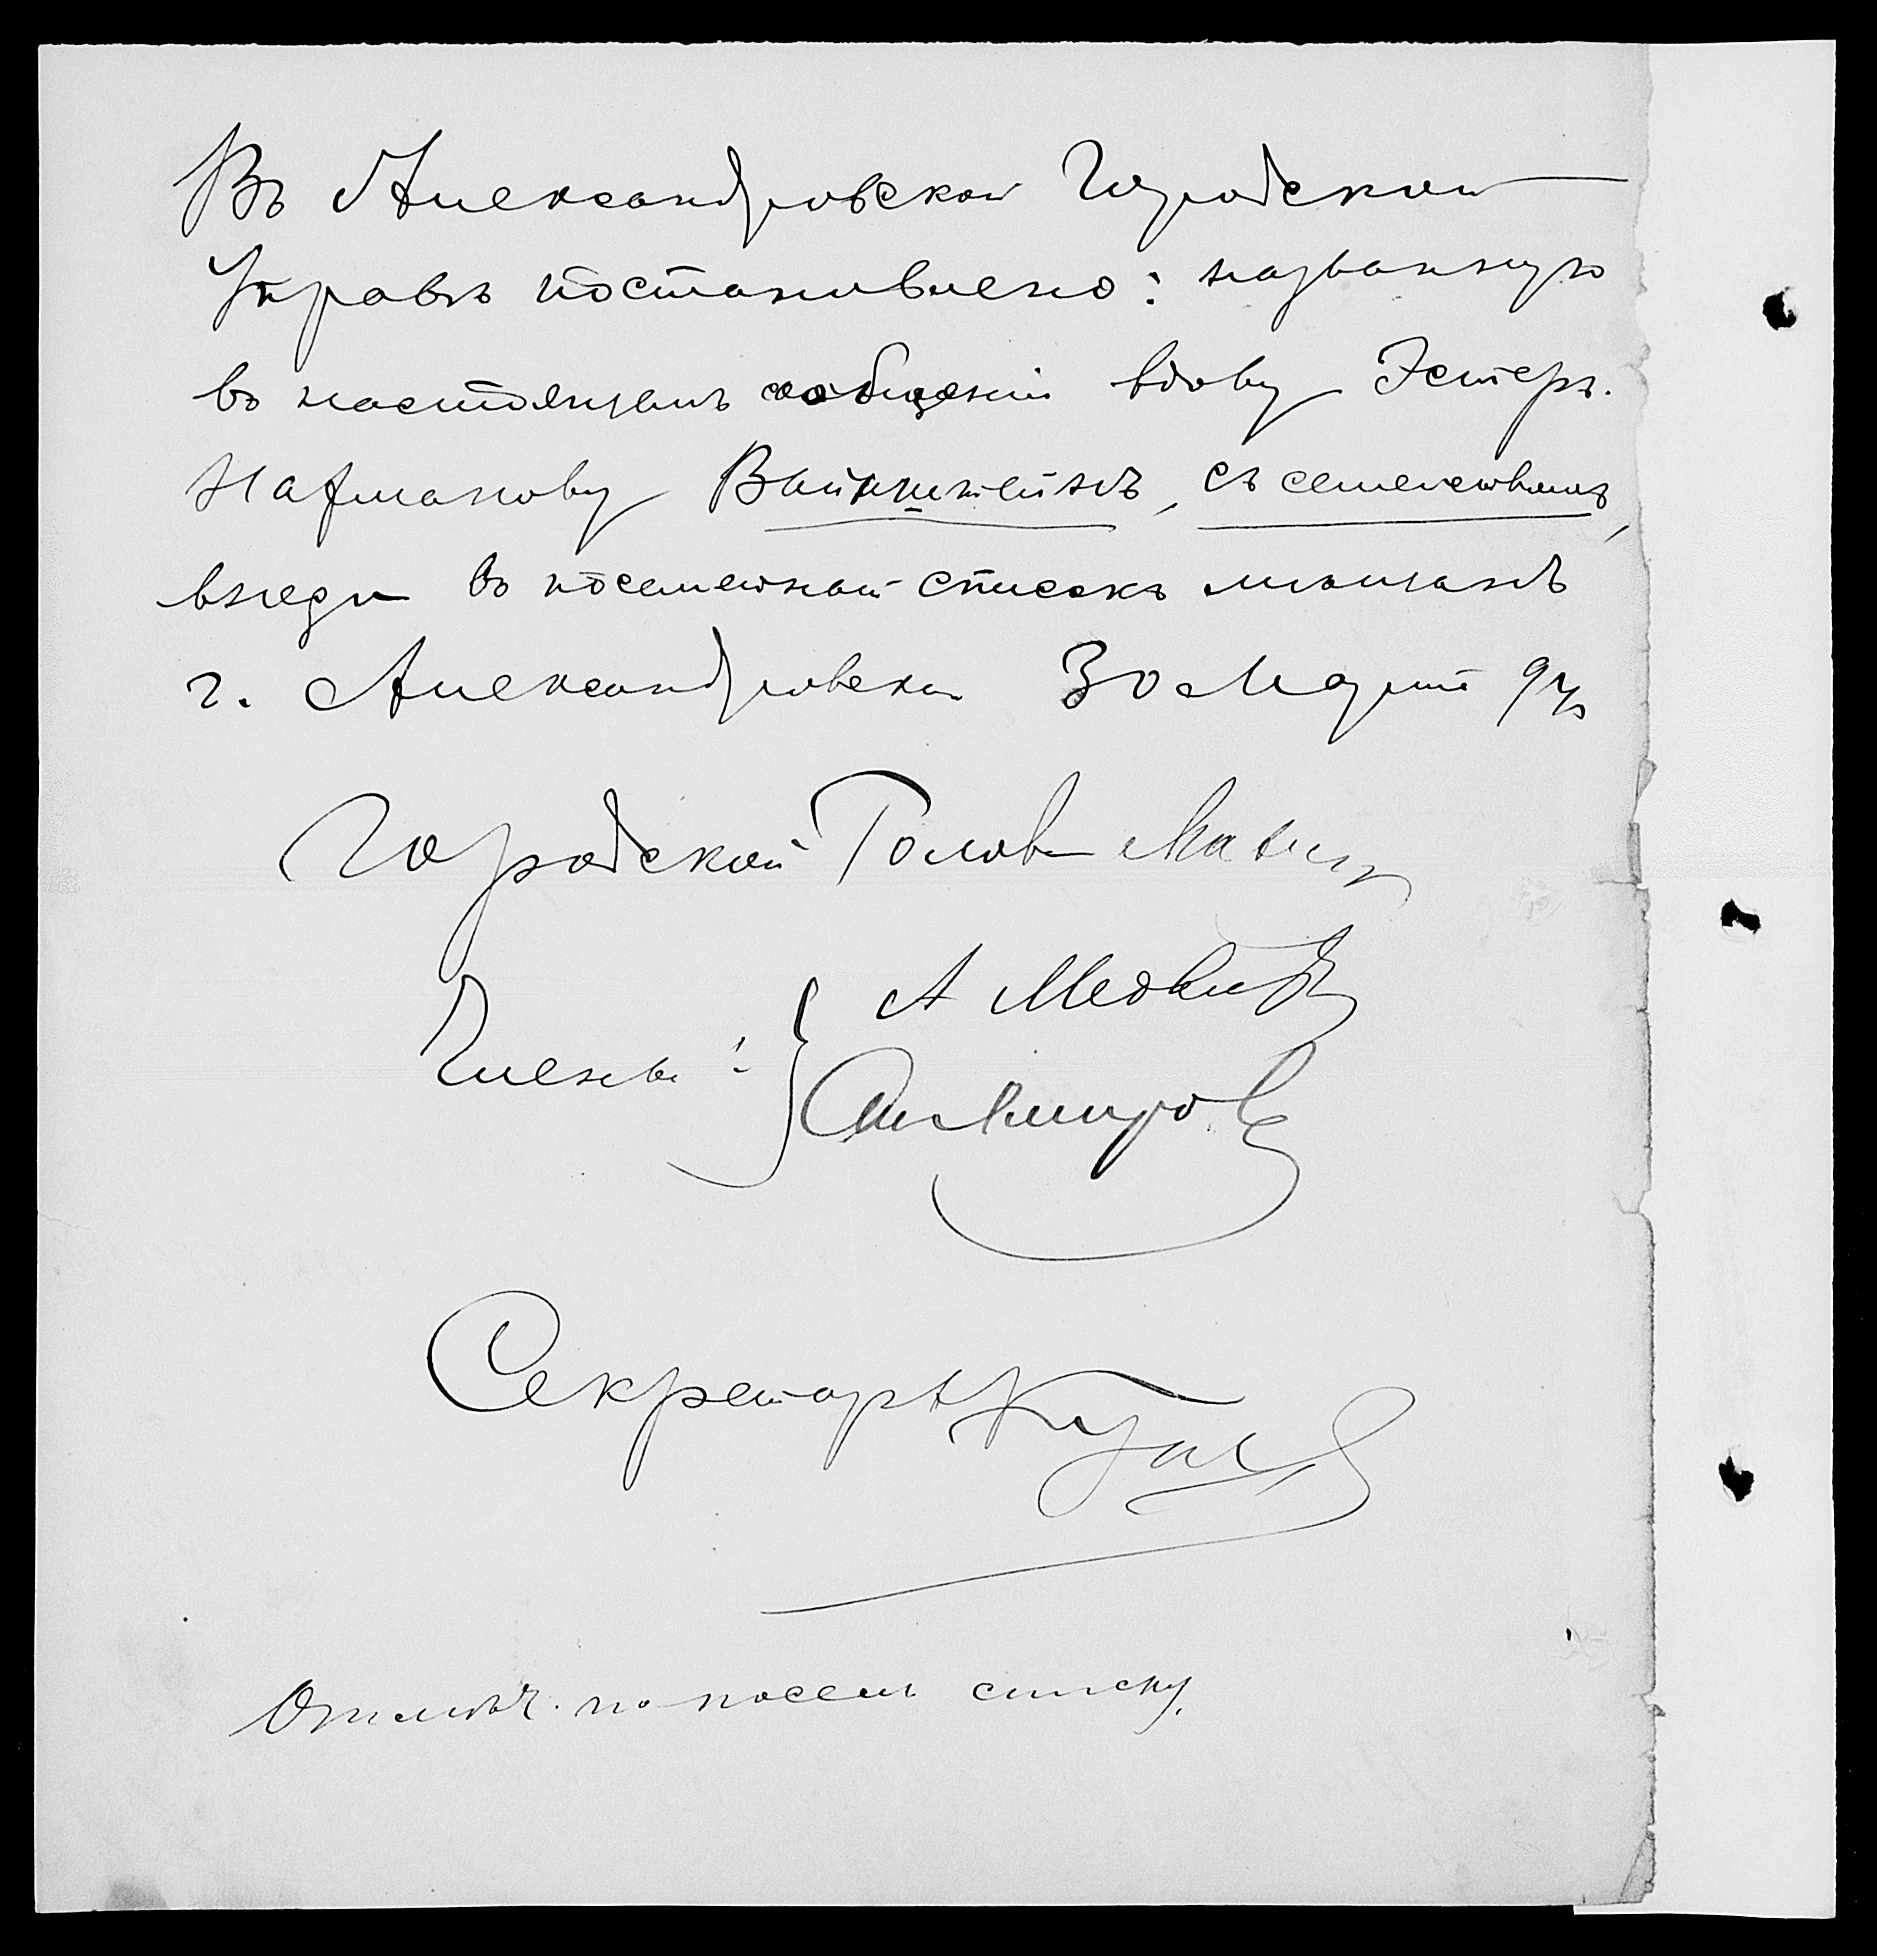 Въ Александровской Городской
Управѣ постановлено: названную
въ настоящемъ сообщеніи вдову Эстеръ
Нахманову Вайнштейнъ, съ семействомъ,
внести въ посемейный списокъ мѣщанъ
г. Александровска 30 Марта 97 г.
Городской Голова
Члены: { А Медвѣдевъ
Секретарь
Отмѣч. по посем. списку.